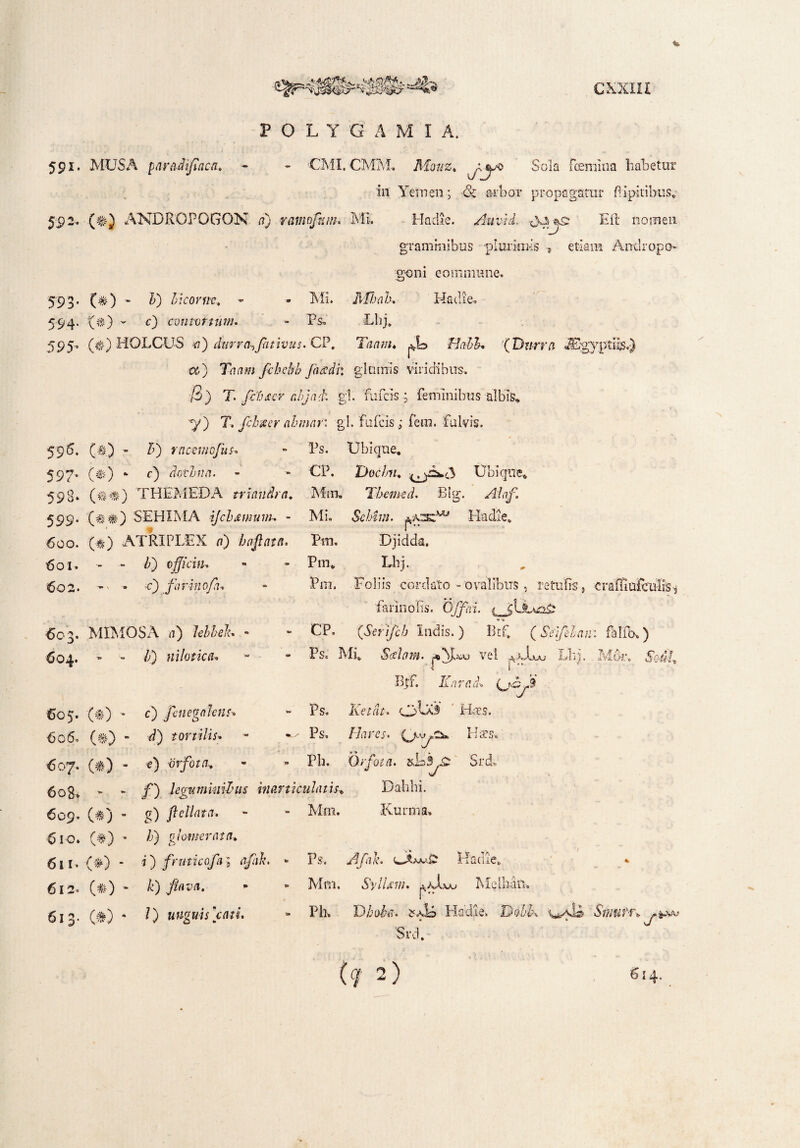 CXXIII
POLYGAMIA.
591. MUSA paradisiaca. - - CMI. CMM. Mouz. موز Sola fœmina habetur
in Yemen; & arbor propagatur stipitibus.
592. (※) ANDROPOGON a) ramosum. Mi. Hadîe. Auvid. Est nomen
graminibus plurimis, etiam Andropo-
goni commune.
593. (※) - b) bicorne. - - Mi. Mhah. Hadîe.
594. (※) - c) contortum. - Ps. Lhj.
595. (※) HOLCUS a) durra, sativus. CP. Taam. طعم Habb. (Durra Ægyptiis.)
α) Taam schebb sfaedi: glumis viridibus.
β) T. schæer abjad: gl. fuscis; feminibus albis.
γ) T. schæer ahmar: gl. fuscis; fem. fulvis.
596. (※) - b) racemosus. - Ps. Ubique.
597. (※) - c) dochna. - - CP. Dochn. دخن Ubique.
598. (※※) THEMEDA triandra. Mm. Themed. Blg. Alaf.
599. (※※) SEHIMA ischæmum. - Mi. Sehîm. Hadîe.
600. (※) ATRIPLEX a) hastata. Pm. Djidda.
601. - - b) officin. - - Pm. Lhj.
602. - - c) farinosa. - Pm. Foliis cordato-ovalibus, retusis, crassiusculis,
farinosis. Össai.
603. MIMOSA a) lebbek. - - CP. (Serisch Indis.) Btf. (Seiselan: falso.)
604. - - b) nilotica. - - Ps. Mi. Sælam. سلام vel سلم Lhj. Môr. Soûl.
Btf. Karad. قرض
605. (※) - c) senegalens. - Ps. Ketât. قتاد Hæs.
606. (※) - d) tortilis. - - Ps. Hares. Hæs.
607. (※) - e) örfota. - - Ph. Örfota. عرفطه Srd.
608. - - f) leguminibus inarticulatis. Dahhi.
609. (※) - g) stellata. - - Mm. Kurma.
610. (※) - h) glomerata.
611. (※) - i) fruticosa; asak. - Ps. Asak. عسق Hadîe.
612. (※) - k) flava. - - Mm. Syllæm. سلم Melhân.
613. (※) - l) unguis cati. - Ph. Dhoba. Hadîe. Dobb. Smurr. سمر
Srd.
(q 2)
614.